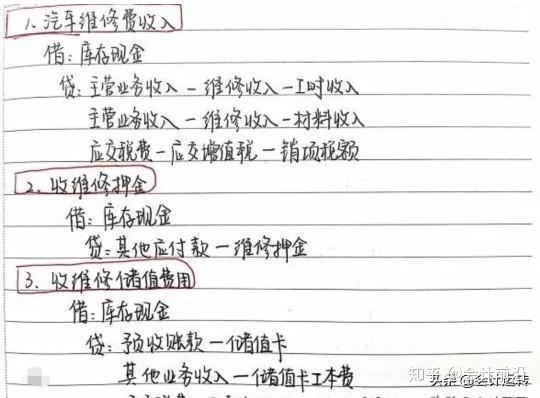 1、汽车维修费收入
借:库存现金
贷:主营业务收入-维修收入-工时收入
主营业务收入-维修收入-材料收入
应交税费-应交增值税-销项税额
2、收维修押金
借:库存现金
贷:其他应付款-维修押金
3、收维修储值费用
借:库存现金
贷:预收账款-储值卡
其他业务收入-储值卡工本费
知乎 @会计前沿
头条@会计运转